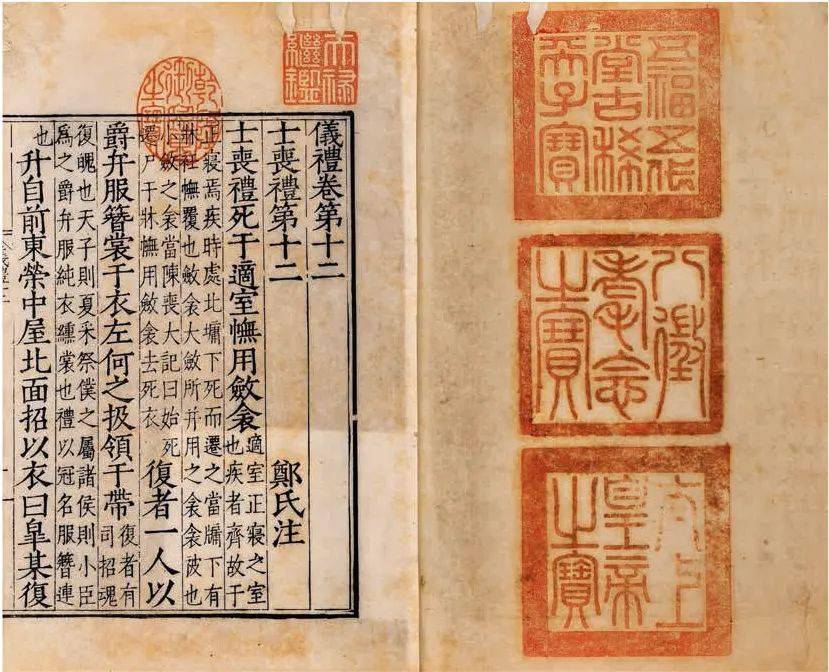 五福五代
堂古稀
天子寶
八徵
耄念
之寶
太上
皇帝
之寶
天祿
繼鑑
乾隆
御覽
之寶
儀禮卷第十二
士喪禮第十二 鄭氏注
士喪禮死于適室幠用斂衾 適室正寢之室也疾者齊故于
正寢焉疾時處北墉下死而遷之當牖下有
牀衽幠覆也斂衾大斂所并用之衾衾被也
小斂之衾當陳喪大記曰始死遷尸于牀幠用斂衾去死衣 復者一人以
爵弁服簪裳于衣左何之扱領于帶 復者有司招魂
復魄也天子則夏采祭僕之屬諸侯則小臣
爲之爵弁服純衣纁裳也禮以冠名服簪連
也 升自前東榮中屋北面招以衣曰皐某復